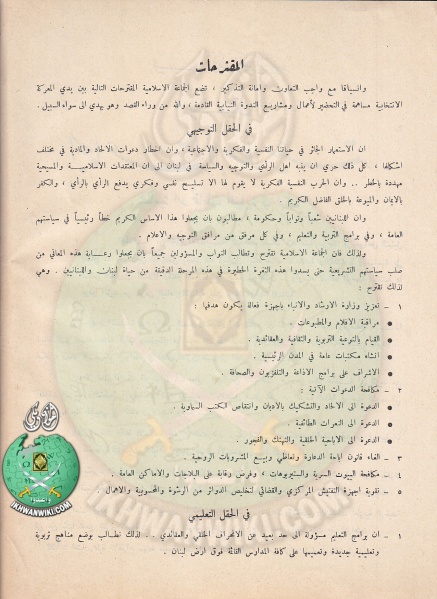 المقترحات
وانسياقا مع واجب التعاون وامانة التذكير ، تضع الجماعة الاسلامية المقترحات التالية بين يدي المعركة
الانتخابية مساهمة في التحضير لأعمال ومشاريع الندوة النيابية القادمة ، والله من وراء القصد وهو يهدي الى سواء السبيل .
في الحقل التوجيهي
ان الاستعمار الجائر في حياتنا النفسية والفكرية والاجتماعية ، وان اخطار دعوات الالحاد والمادية في مختلف
اشكالها ، كل ذلك حري ان ينبه اهل الرأي والتوجيه والسياسة في لبنان الى ان المعتقدات الاسلامية والمسيحية
مهددة بالخطر .. وان الحرب النفسية الفكرية لا يقوم لها الا تسليح نفسي وفكري يدفع الرأي بالرأي ، والكفر
بالايمان والميوعة بالخلق الفاضل الكريم .
وان اللبنانيين شعباً ونواباً وحكومة ، مطالبون بان يجعلوا هذا الاساس الكريم خطاً رئيسياً في سياستهم
العامة ، وفي برامج التربية والتعليم ، وفي كل مرفق من مرافق التوجيه والاعلام .
ولذلك فان الجماعة الاسلامية تقترح وتطالب النواب والمسؤولين جميعاً بان يجعلوا رعاية هذه المعاني من
صلب سياستهم التشريعية حتى يسدوا هذه الثغرة الخطيرة في هذه المرحلة الدقيقة من حياة لبنان واللبنانيين . وهي
لذلك تقترح :
١ - تعزيز وزارة الارشاد والانباء باجهزة فعالة يكون هدفها :
● مراقبة الافلام والمطبوعات .
● القيام بالتوعية التربوية والثقافية والعقائدية .
● انشاء مكتبات عامة في المدن الرئيسية .
● الاشراف على برامج الاذاعة والتلفزيون والصحافة .
٢ - مكافحة الدعوات الآتية :
● الدعوة الى الالحاد والتشكيك بالاديان وانتقاص الكتب السماوية .
● الدعوة الى النعرات الطائفية .
● الدعوة الى الاباحية الخلقية والتهتك والفجور .
٣ - الغاء قانون اباحة الدعارة وتعاطي وبيع المشروبات الروحية .
٤ - مكافحة البيوت السرية والستيريوهات ، وفرض رقابة على البلاجات والاماكن العامة .
٥ - تقوية اجهزة التفتيش المركزي والقضائي لتخليص الدوائر من الرشوة والمحسوبية والاهمال .
في الحقل التعليمي
١ - ان برامج التعليم مسؤولة الى حد بعيد عن الانحراف الخلقي والعقائدي .. لذلك نطالب بوضع مناهج تربوية
وتعليمية جديدة وتعميمها على كافة المدارس القائمة فوق ارض لبنان .
IKHWANWIKI.COM